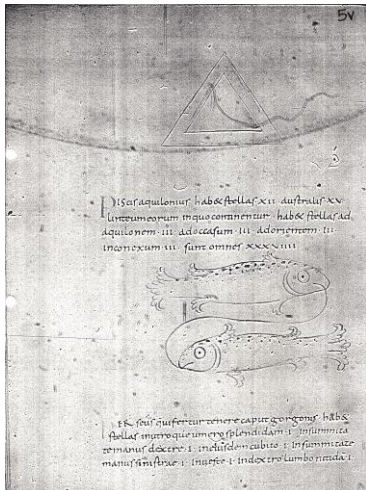 5v
Piscis aquilonius hab& stellas XII australis XV
linteum eorum in quo continentur hab& stellas ad
aquilonem · III · ad occasum · III · ad orientem · III ·
in conexum · III · sunt omnes XXXVIIII
PERseus qui fertur tenere caput gorgonis · hab&
stellas in utroque umero splendidam · I · in summita
te manus dextre · I · in eiusdem cubito · I · In summitate
manus sinistrae · I · In ueste · I · In dextro lumbo nitida · I ·